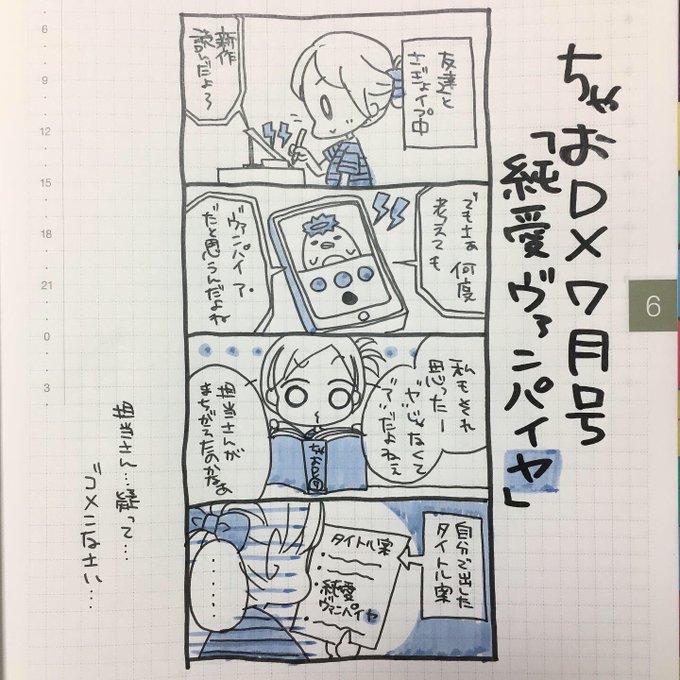 ちゃおDX7月号
「純愛ヴァンパイヤ」
友達と
さぎょイプ中
新作
読んだよ〜
でもさぁ 何度
考えても
ヴァンパイア
だと思うんだよね
私もそれ
思ったー
"ヤ"じゃなくて
"ア"だよねぇ
担当さんが
まちがえたのかなぁ
ちゃおDX
自分で出した
タイトル案
タイトル案
純愛
ヴァンパイヤ
……
担当さん…疑って…
ゴメンなさい…
6
9
12
15
18
21
0
3
6